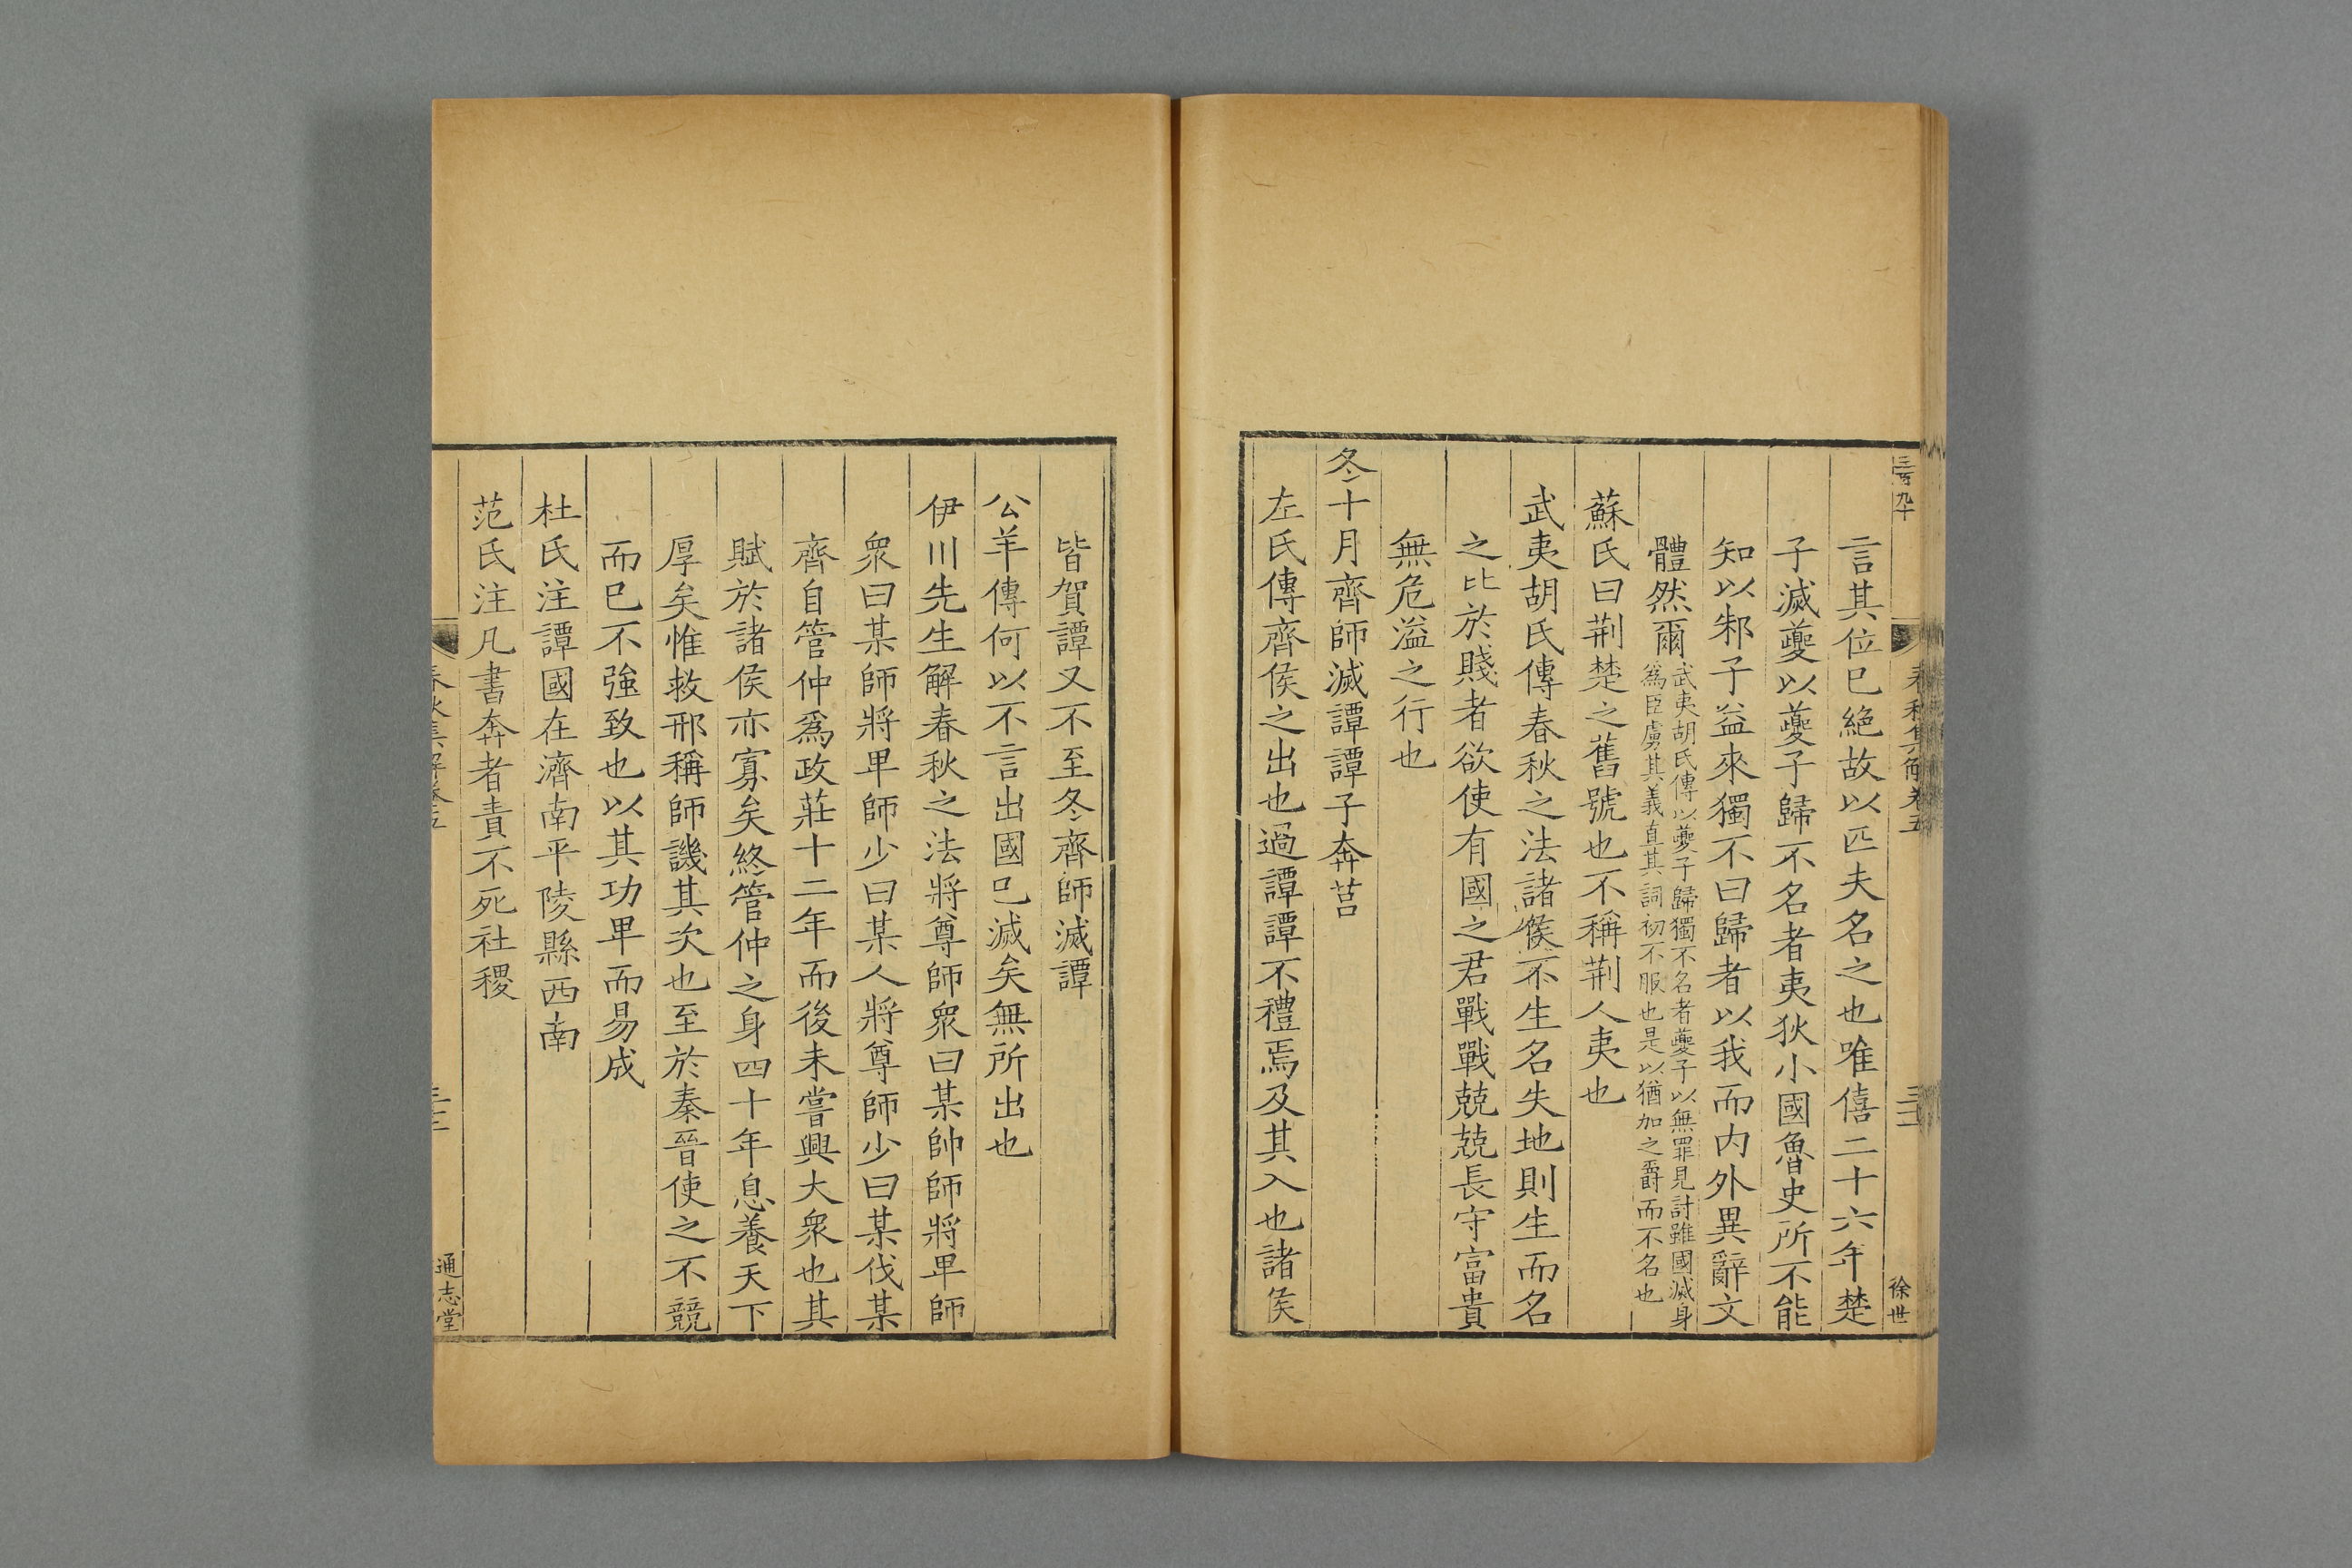 三百九十
春秋集解卷五
三十二
徐世
言其位已絕故以匹夫名之也唯僖二十六年楚
子滅夔以夔子歸不名者夷狄小國魯史所不能
知以邾子益來獨不曰歸者以我而内外異辭文
體然爾武夷胡氏傳以夔子歸獨不名者夔子以無罪見討雖國滅身
爲臣虜其義直其詞初不服也是以猶加之爵而不名也
蘇氏曰荆楚之舊號也不稱荆人夷也
武夷胡氏傳春秋之法諸侯不生名失地則生而名
之比於賤者欲使有國之君戰戰兢兢長守富貴
無危溢之行也
冬十月齊師滅譚譚子奔莒
左氏傳齊侯之出也過譚譚不禮焉及其入也諸侯
皆賀譚又不至冬齊師滅譚
公羊傳何以不言出國已滅矣無所出也
伊川先生解春秋之法將尊師衆曰某帥師將卑師
衆曰某師將卑師少曰某人將尊師少曰某伐某
齊自管仲爲政莊十二年而後未嘗興大衆也其
賦於諸侯亦寡矣終管仲之身四十年息養天下
厚矣惟救邢稱師譏其次也至於秦晉使之不競
而已不強致也以其功卑而易成
杜氏注譚國在濟南平陵縣西南
范氏注凡書奔者責不死社稷
春秋集解卷五
通志堂